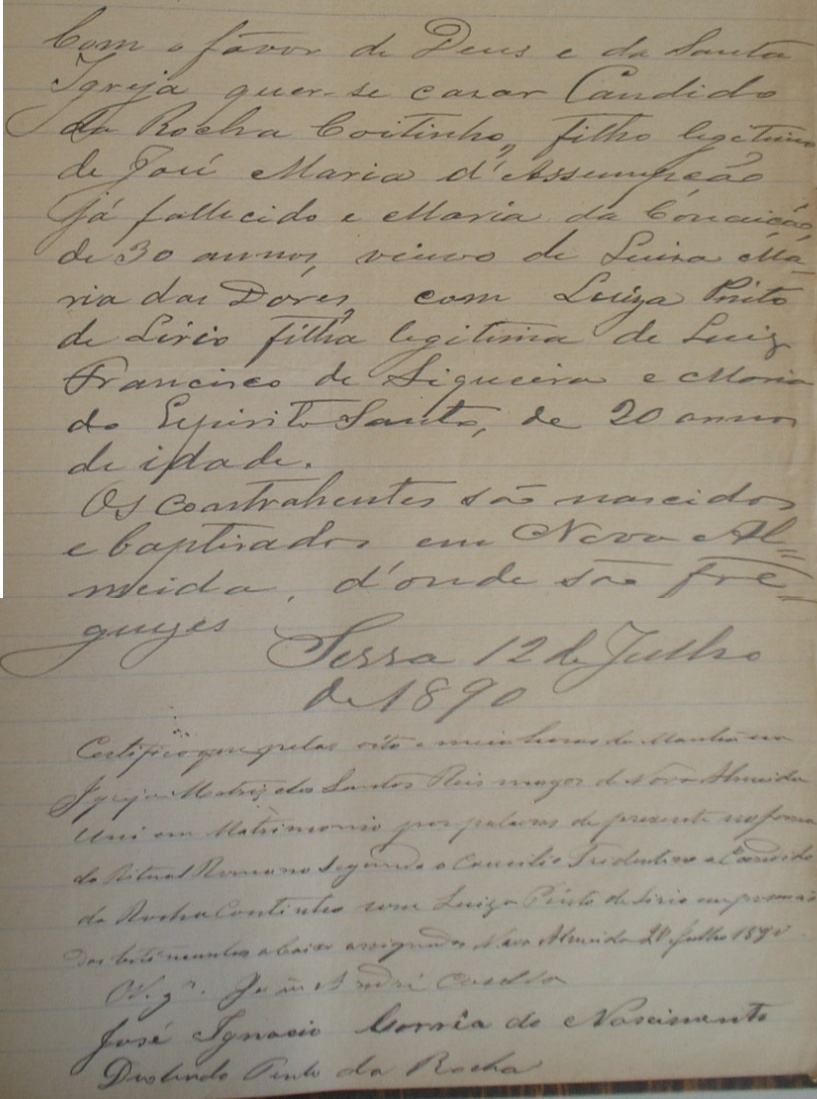 Com o favor de Deus e da Santa
Igreja quer-se casar Candido
da Rocha Coitinho, filho legitimo
de José Maria d'Assumpção
já fallecido e Maria da Conceição,
de 30 annos, viuvo de Luisa Ma-
ria das Dores, com Luiza Pinto
de Lirio filha legitima de Luiz
Francisco de Siqueira e Maria
do Espirito Santo, de 20 annos
de idade.
Os contrahentes são nascidos
e baptisados em Nova Al=
meida, d'onde são fre=
guezes
Serra 12 de Julho
de 1890
Certifico que pelas oito e meia horas da Manhã na
Igreja Matriz dos Santos Reis magos de Nova Almeida
Uni em Matrimonio por palavras de presente na forma
do Ritual Romano Segundo o Concilio Tridentino a Candido
da Rocha Continho com Luiza Pinto de Lirio em presença
das testemunhas abaixo assignadas Nova Almeida 20 Julho 1890
O Vigº. João André Casella
José Ignacio Corrêa do Nascimento
Deolindo Pinto da Rocha